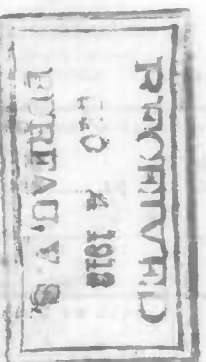 RECEIVED
4 1918
BUREAU, V. S.